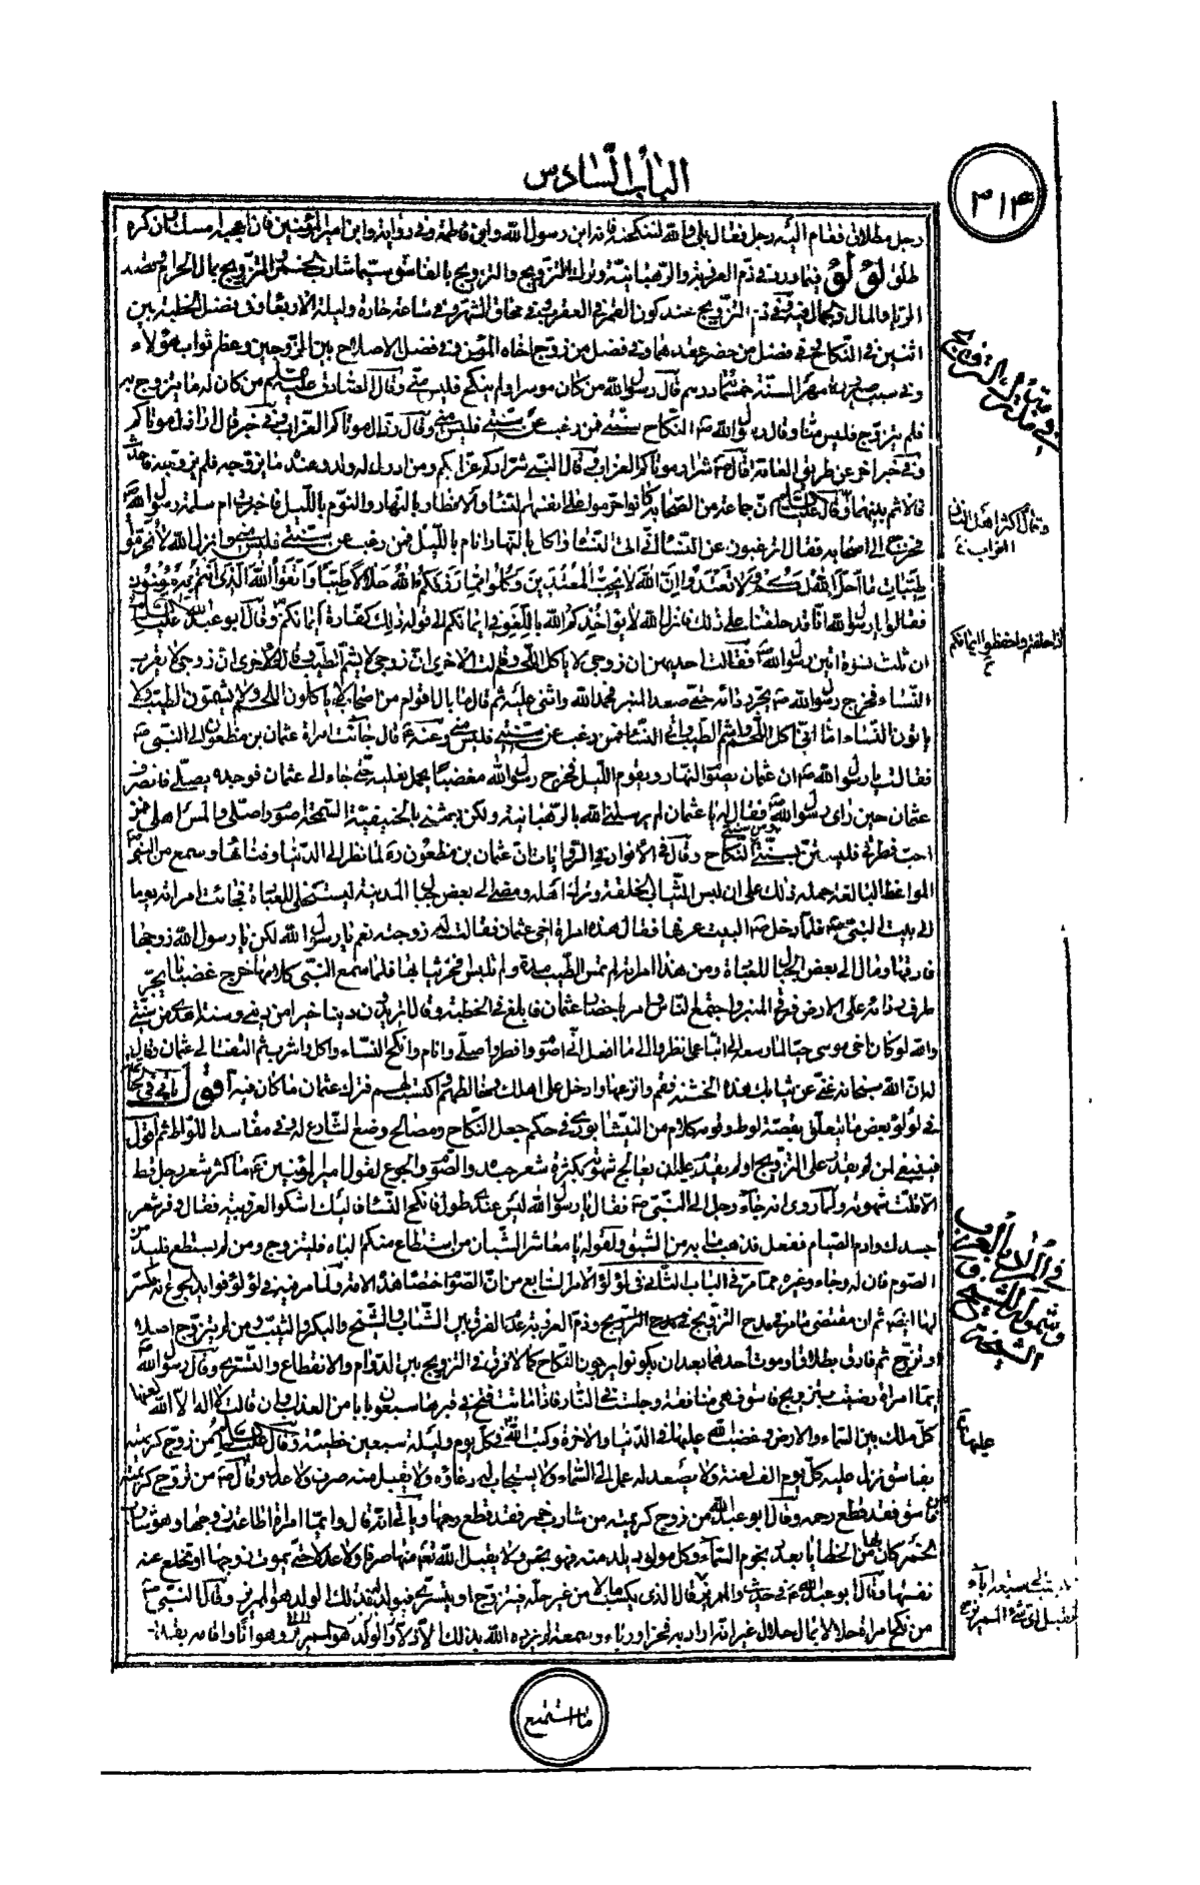 الباب السادس
٣١٤
رجل مطلاق فقام اليه رجل فقال بلى والله لننكحنه فانه ابن رسول الله وابن فاطمة وفى رواية وابن امير المؤمنين فان اعجبه امسك وان كره
طلق لؤلؤ فيما ورد فى ذم العزوبة والرهبانية وترك التزويج والتزويج بالفاسق سيما شارب الخمر والتزويج بمال الحرام وقصد
الرياء والمال والجمال فيه وفى ذم التزويج عند كون القمر فى العقرب وفى محاق الشهر وفى ساعة حارة وليلة الاربعاء وفى فضل الخطبة بين
اثنين فى النكاح وفى فضل من حضر عقدهما وفى فضل من زوج اخاه المؤمن وفى فضل الاصلاح بين الزوجين وعظم ثواب هؤلاء
وفى سبب صيرورة مهر السنة خمسمائة درهم قال رسول الله من كان موسرا ولم ينكح فليس منى وقال الصادق عليه السلم من كان له ما يتزوج به
فلم يتزوج فليس منا وقال رسول الله ص النكاح سنتى فمن رغب عن سنتى فليس منى وقال رذال موتاكم العزاب وفى خبر قال اراذل موتاكم
وفى خبر اخر عن طريق العامة قال ص شرار موتاكم العزاب قال النبى شراركم عزابكم ومن ادرك له ولد وعنده ما يزوجه فلم يزوجه فاحدث
فالاثم بينهما وقال عليه السلم ان جماعة من الصحابة كانوا حرموا على انفسهم النساء والافطار بالنهار والنوم بالليل فاخبرت ام سلمة رسول الله
فخرج الى اصحابه فقال اترغبون عن النساء انى اتى النساء واكل بالنهار وانام بالليل فمن رغب عن سنتى فليس منى وانزل الله لا تحرموا
طيبات ما احل الله لكم ولا تعتدوا ان الله لا يحب المعتدين وكلوا مما رزقكم الله حلالا طيبا واتقوا الله الذى انتم به مؤمنون
فقالوا يا رسول الله انا قد حلفنا على ذلك فانزل الله لا يؤاخذكم الله باللغو فى ايمانكم الى قوله ذلك كفارة ايمانكم وقال ابو عبد الله عليه السلم
ان ثلث نسوة اتين رسول الله ص فقالت احديهن ان زوجى لا ياكل اللحم وقالت الاخرى ان زوجى لا يشم الطيب وقالت الاخرى ان زوجى لا يقرب
النساء فخرج رسول الله ص يجر ردائه حتى صعد المنبر فحمد الله واثنى عليه ثم قال ما بال اقوام من اصحابى لا ياكلون اللحم ولا يشمون الطيب ولا
ياتون النساء اما انى اكل اللحم واشم الطيب واتى النساء فمن رغب عن سنتى فليس منى وعنه ع قال جائت امراة عثمان بن مظعون الى النبى ص
فقالت يا رسول الله ص ان عثمان يصوم النهار ويقوم الليل فخرج رسول الله مغضبا يحمل نعليه حتى جاء الى عثمان فوجده يصلى فانصرف
عثمان حين راى رسول الله فقال له يا عثمان لم يرسلنى الله بالرهبانية ولكن بعثنى بالحنيفية السمحة اصوم واصلى والمس اهلى فمن
احب فطرتى فليستن بسنتى ومن سنتى النكاح وقال فى الانوار فى الروايات ان عثمان بن مظعون ره لما نظر الى الدنيا وفنائها وسمع من النبى ص
المواعظ البالغة حمله ذلك على ان لبس الثياب الخلقة وترك اهله ومضى الى بعض جبال المدينة ليستخلى للعبادة فجائت امراته يوما
الى بيت النبى ص فلما دخل ص البيت عرفها فقال هذه امراة اخى عثمان فقالت له زوجته نعم يا رسول الله لكن يا رسول الله زوجها
فارقها ومال الى بعض الجبال للعبادة ومن هذا لم تمس الطيب مدة ولم تلبس فخر ثيابها فلما سمع النبى كلامها خرج غضبانا يجر
طرف ردائه على الارض فرقى المنبر واجتمع الناس وامر باحضار عثمان فابلغ فى الخطبة وقال اتريدون دينا خيرا من دينى وسنة اهدى من سنتى
والله لو كان اخى موسى حيا لما وسعه الا اتباعى انظروا الى ما افعل انى اصوم وافطر واصلى وانام وانكح النساء واكل واشرب ثم التفت الى عثمان وقال
له ان الله سبحانه غنى عن ثيابك هذه الخشنة فقم وانزعها وادخل على اهلك وخالطهم واكتسب لهم فترك عثمان ما كان فيه اقول ياتى فى
فى لؤلؤ بعض ما يتعلق بقصة لوط وقومه كلام من النيشابورى فى حكم جعل النكاح ومصالح وضع الشارع له وفى مفاسد اللواط ثم اقول
فينبغى لمن لم يقدر على التزويج اولم يفد عليه ان يعالج شهوته بكثرة شعر جسده والصوم والجوع لقول امير المؤمنين ع ما كثر شعر رجل قط
الا قلت شهوته ولما روى انه جاء رجل الى النبى ص فقال يا رسول الله ليس عندى طول فانكح النساء فاليك اشكو العزوبية فقال وفر شعر
جسدك وادم الصيام ففعل فذهب ما به من الشبق ولقوله يا معاشر الشبان من استطاع منكم الباه فليتزوج ومن لم يستطع فليدمن
الصوم فان له وجاء وغيره مما مر فى الباب الثانى فى لؤلؤ الامر السابع من ان الصوم اخصاء هذه الامة ولما مر فيه فى لؤلؤ فوايد الجوع
لها ايضا ثم ان مقتضى ما مر فى مدح التزويج وذم العزبة عدم الفرق بين الشاب والشيخ والبكر والثيب ومن لم يتزوج اصلا
او تزوج ثم فارق بطلاق او موت احدهما بعد ان يكونوا يرجون النكاح كما لا فرق فى التزويج بين الدوام والانقطاع والتسرى وقال رسول الله
ايما امراة رضيت بتزويج فاسق فهى منافقة وجلست فى النار فاذا ماتت فتح فى قبرها سبعون بابا من العذاب وان قالت لا اله الا الله لعنها
كل ملك بين السماء والارض وغضب الله عليها فى الدنيا والاخرة وكتب الله فى كل يوم وليلة سبعين خطيئة وقال عليه السلم من زوج كريمته
بفاسق نزل عليه كل يوم الف لعنة ولا يصعد له عمل الى السماء ولا يستجاب له دعاؤه ولا يقبل منه صرف ولا عدل وقال ص من زوج كريمته
بفاسق فقد قطع رحمه وقال ابو عبد الله من زوج كريمته من شارب خمر فقد قطع رحمها وياتى انه قال وايما امراة اطاعت زوجها وهو شارب
الخمر كان لها من الخطايا بعدد نجوم السماء وكل مولود يلد منه فهو نجس ولا يقبل الله تعالى منها صرفا ولا عدلا حتى يموت زوجها او تخلع عنه
نفسها وقال ابو عبد الله ع فى حديث والمرفى قال الذى يكسب مالا من غير حله فيتزوج او يتسرى فيولد له فذلك الولد هو المرفى وقال النبى ص
من نكح امراة حلالا بمال حلال غير انه اراد به فخرا ورياء وسمعة لم يزده الله بذلك الا ذلا والولد هو وهوانا واقامه بقدر
ما استمتع
وقال اكثر اهل النار
العزاب
اذا حلفتم واحفظوا ايمانكم
فى الامر العزب
وشمول الشيخ
والشيخة
عليها